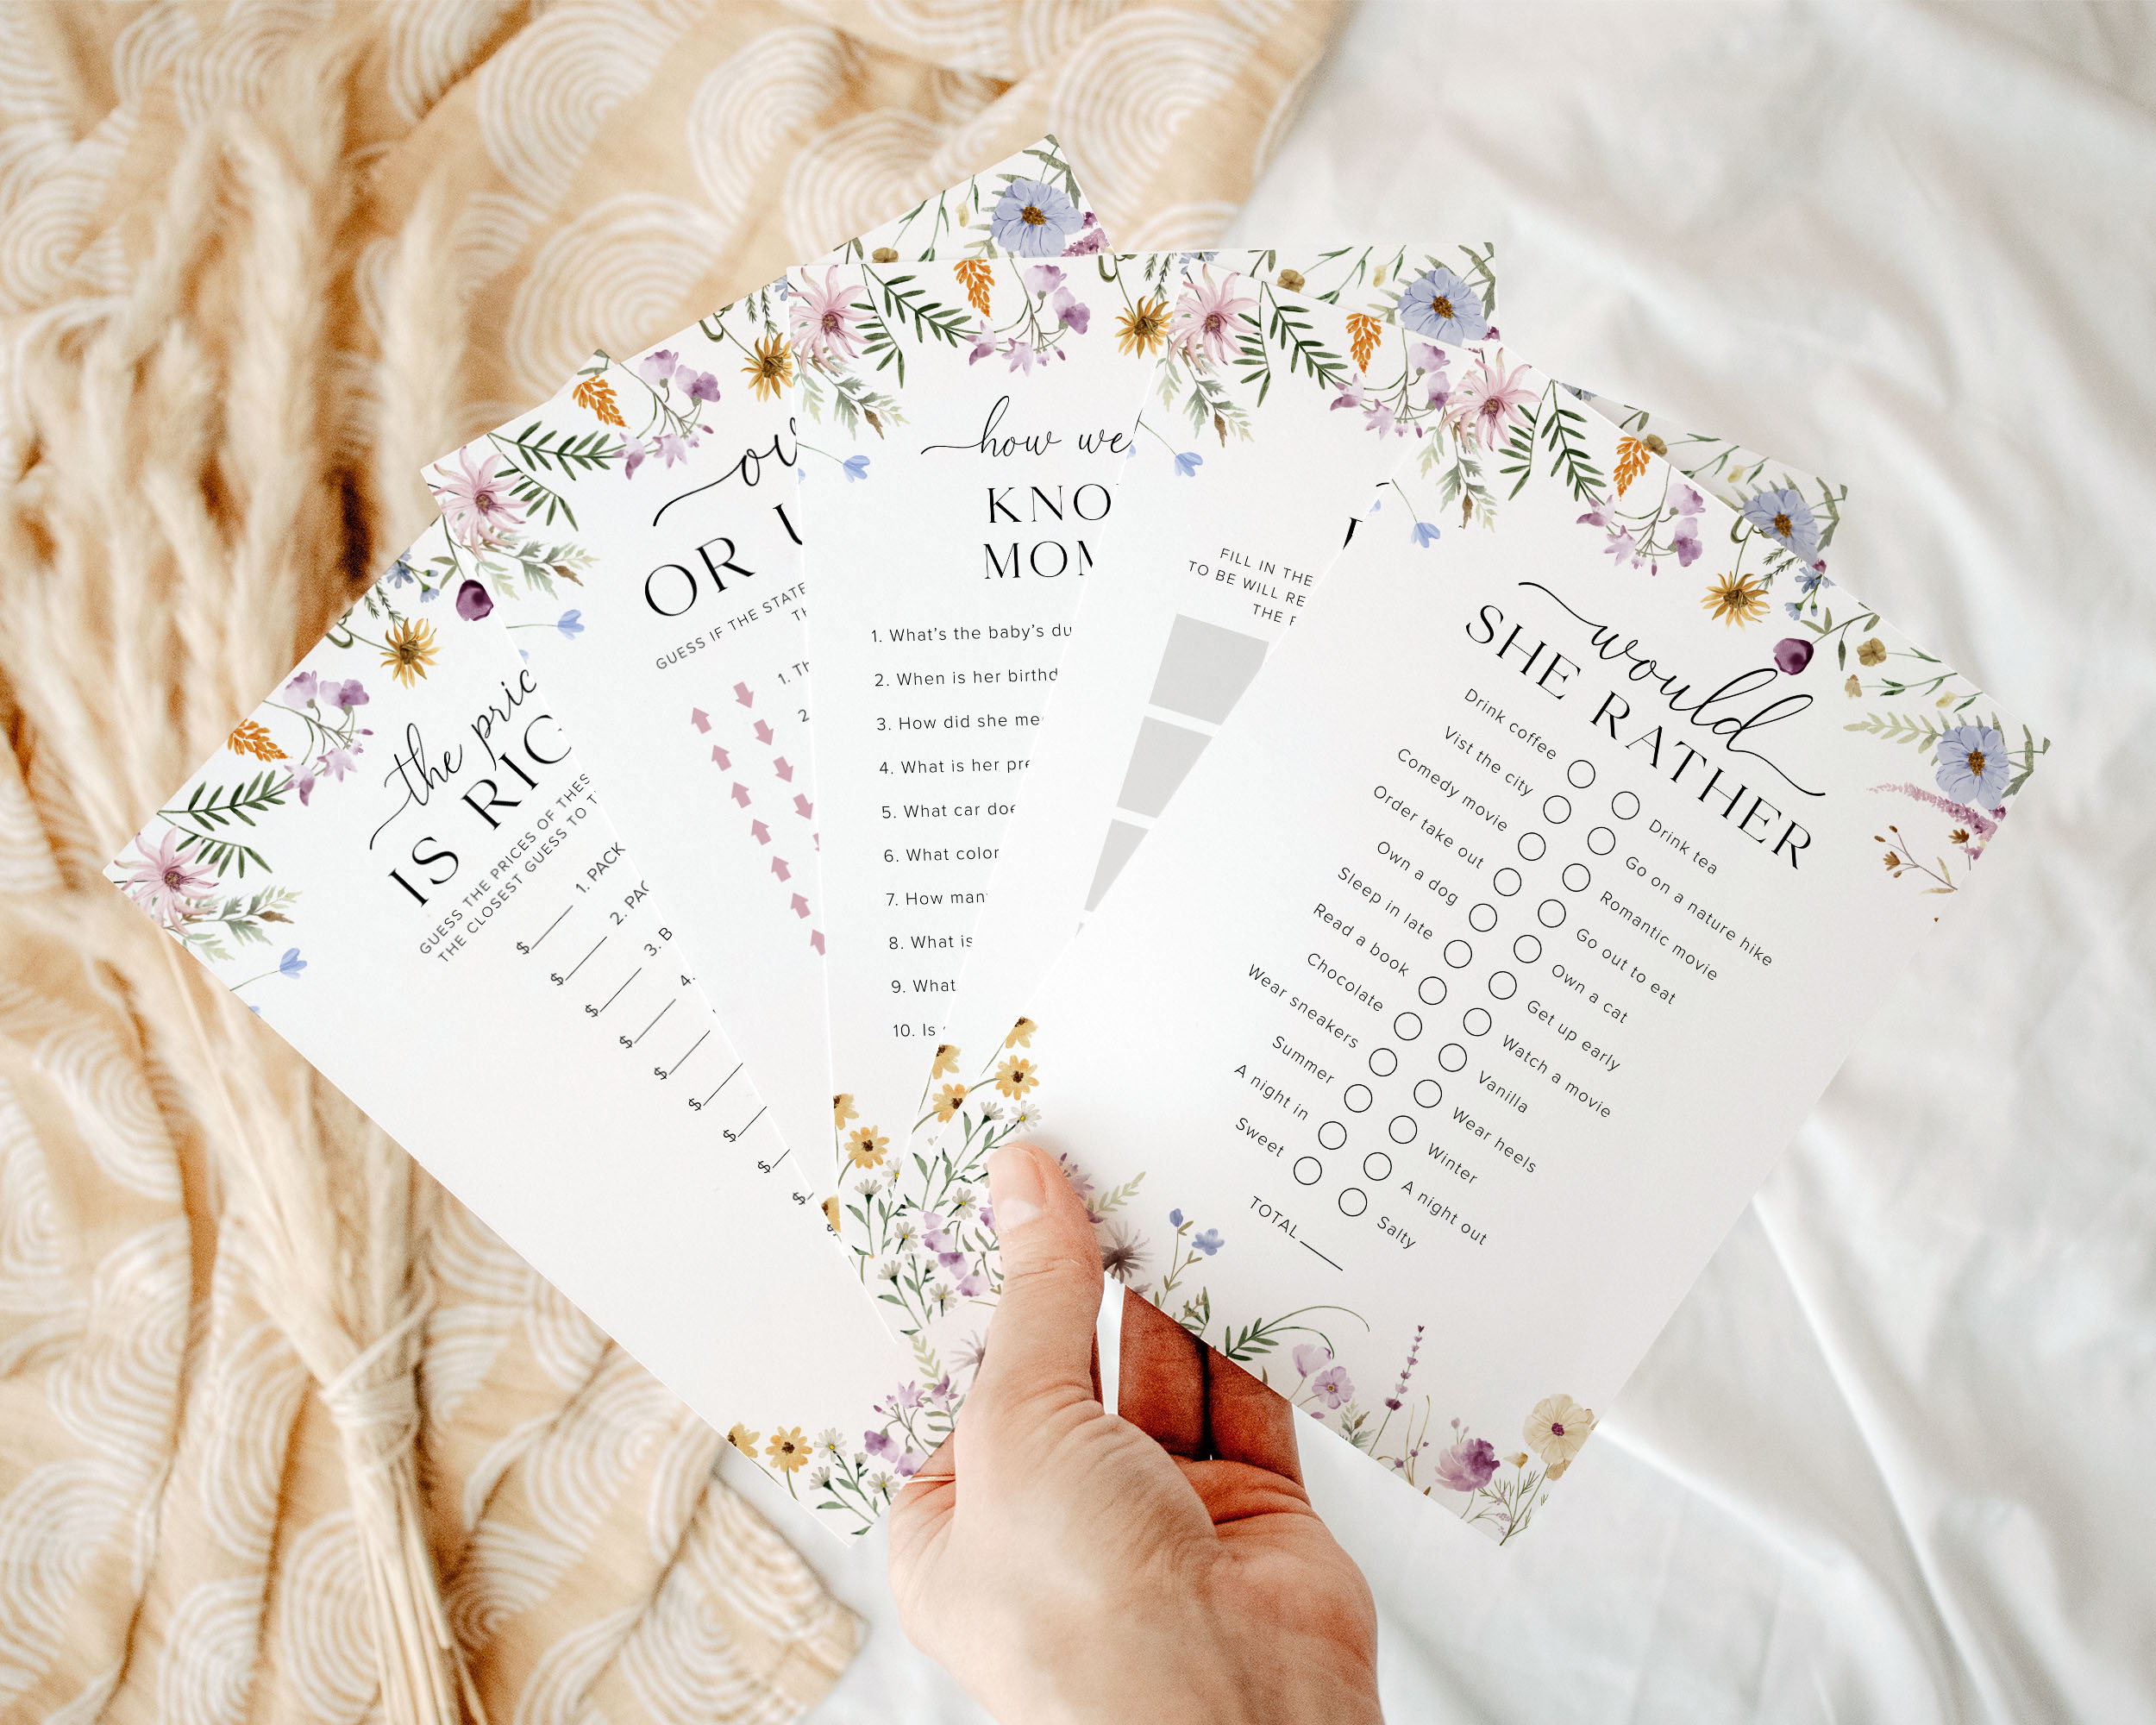 the pric
IS RIG
GUESS THE PRICES OF THES
THE CLOSEST GUESS TO T
$ 1. PACK
$ 2. PAC
$ 3. B
$ 4.
$
$
$
$
$
OR
GUESS IF THE STATE
1. Th
2
how we
KNO
MOM
1. What's the baby's du
2. When is her birthd
3. How did she me
4. What is her pre
5. What car doe
6. What color
7. How man
8. What is
9. What
10. Is
FILL IN THE
TO BE WILL RE
THE
would
SHE RATHER
Drink coffee Drink tea
Vist the city Go on a nature hike
Comedy movie Romantic movie
Order take out Go out to eat
Own a dog Own a cat
Sleep in late Get up early
Read a book Watch a movie
Chocolate Vanilla
Wear sneakers Wear heels
Summer Winter
A night in A night out
Sweet Salty
TOTAL